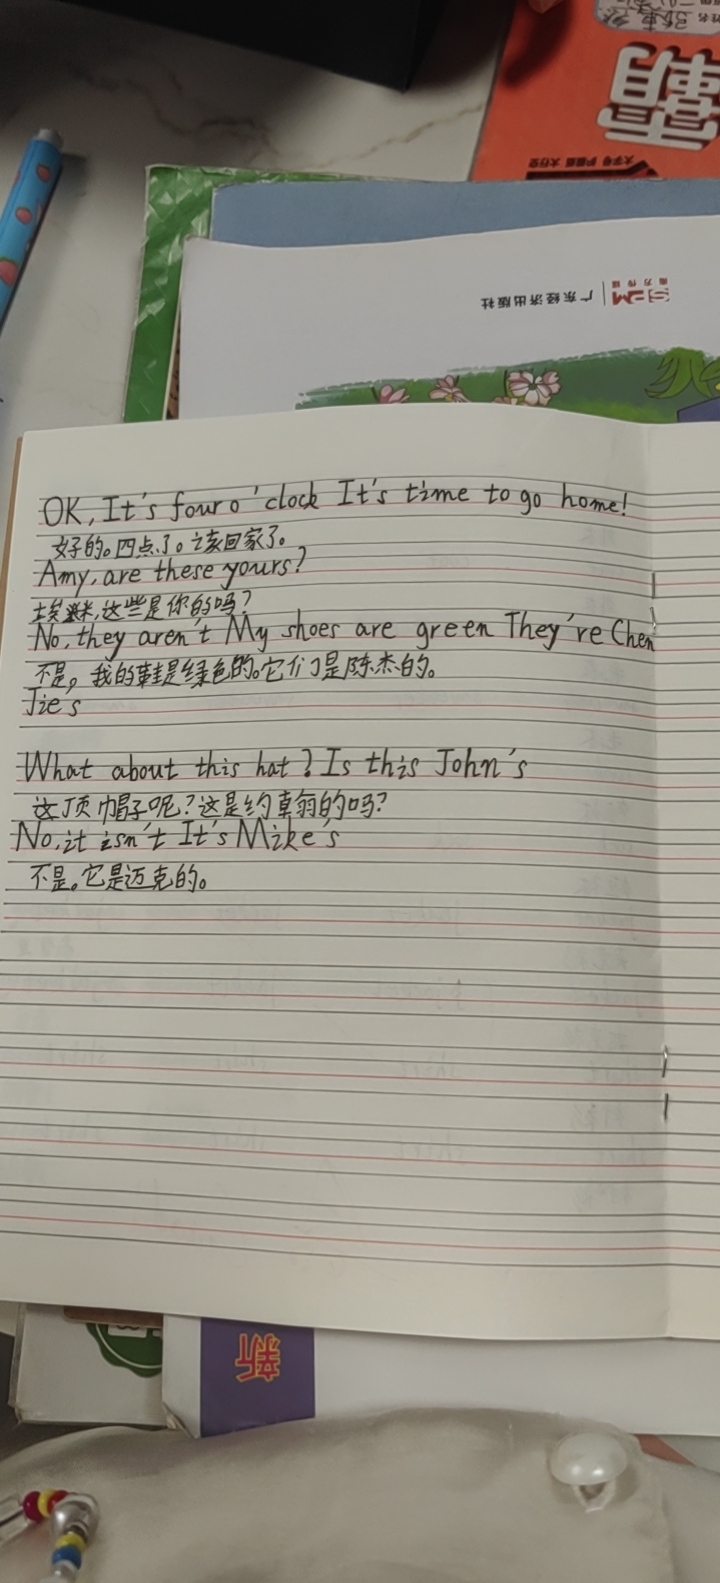 霸
大字号 护眼版 大行空
SPM 南方传媒 | 广东经济出版社
OK, It's four o'clock It's time to go home!
好的。四点了。该回家了。
Amy, are these yours?
埃米,这些是你的吗?
No, they aren't My shoes are green They're Chen
不是,我的鞋是绿色的。它们是陈杰的。
Jie s
What about this hat? Is this John's
这顶帽子呢?这是约翰的吗?
No, it isn't It's Mike's
不是。它是迈克的。
新